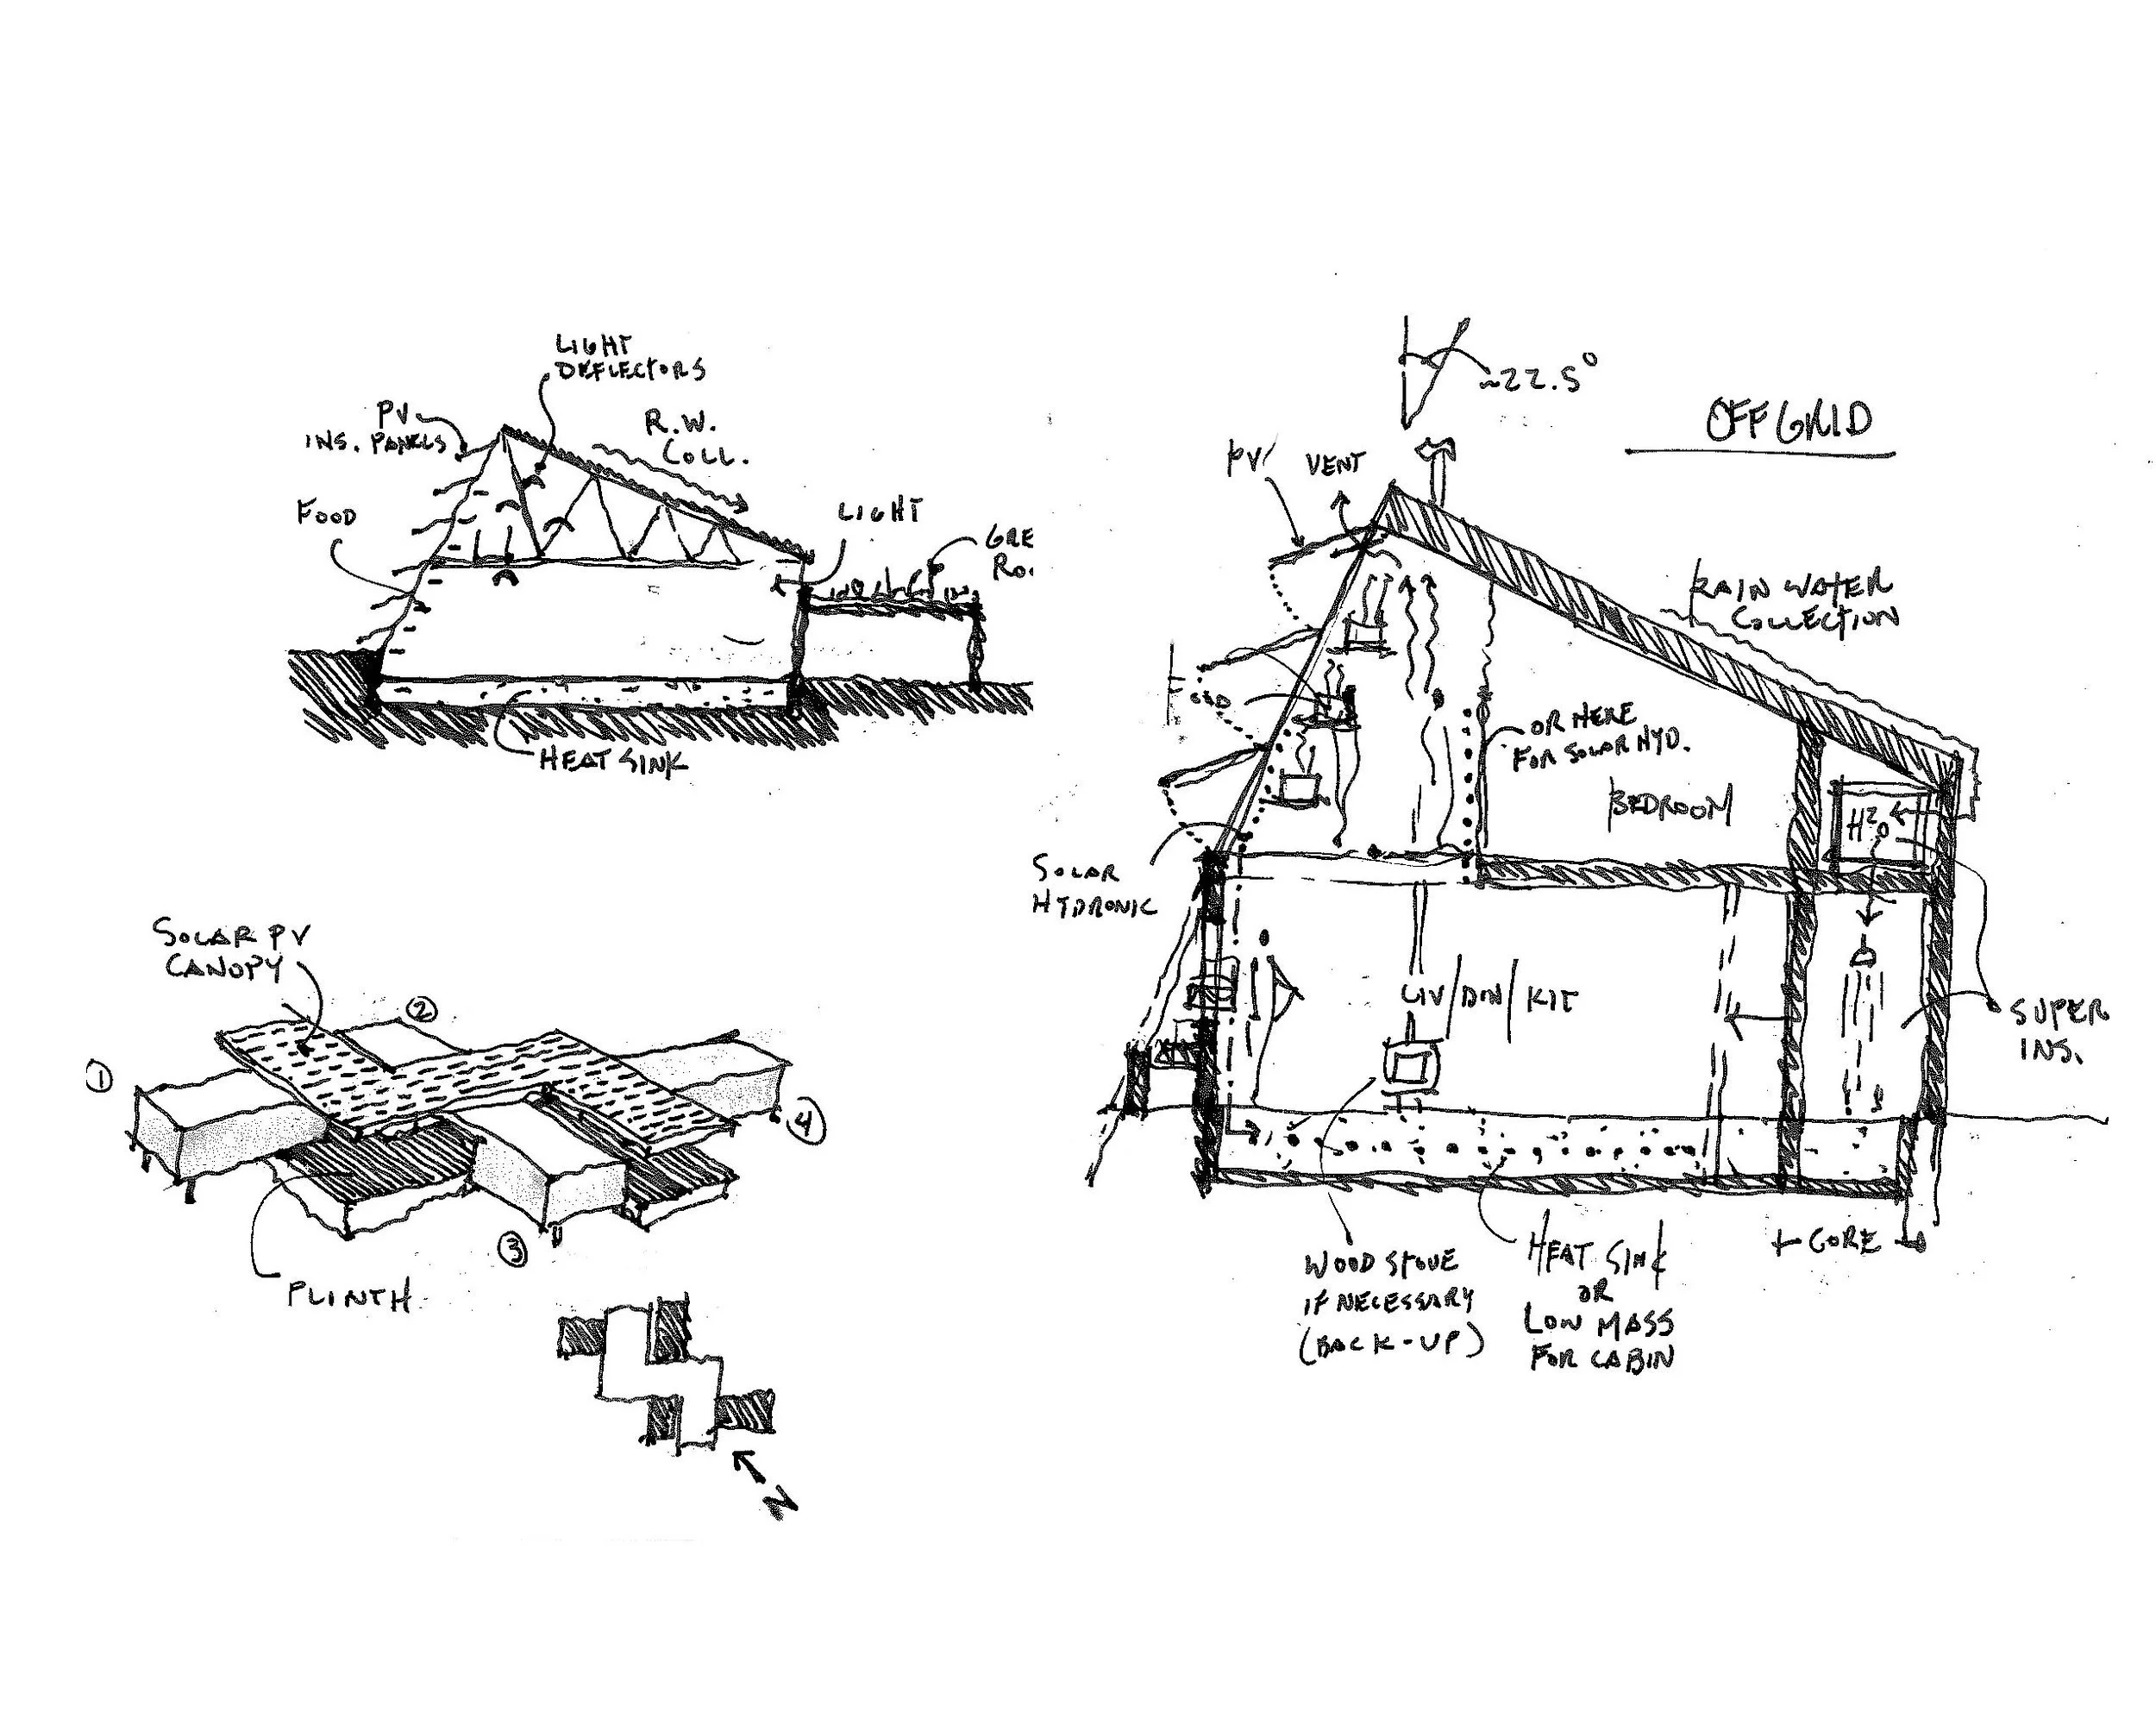 LIGHT
DEFLECTORS
PV
INS. PANELS
R.W.
COLL.
FOOD
LIGHT
GRE
RO
HEAT SINK
SOLAR PV
CANOPY
①
②
③
④
PLINTH
N
~22.5°
OFF GRID
PV
VENT
RAIN WATER
COLLECTION
OR HERE
FOR SOLAR HYD.
BEDROOM
H²O
SOLAR
HYDRONIC
LIV/DIN/KIT
SUPER
INS.
WOOD STOVE
IF NECESSARY
(BACK-UP)
HEAT SINK
OR
LOW MASS
FOR CABIN
CORE